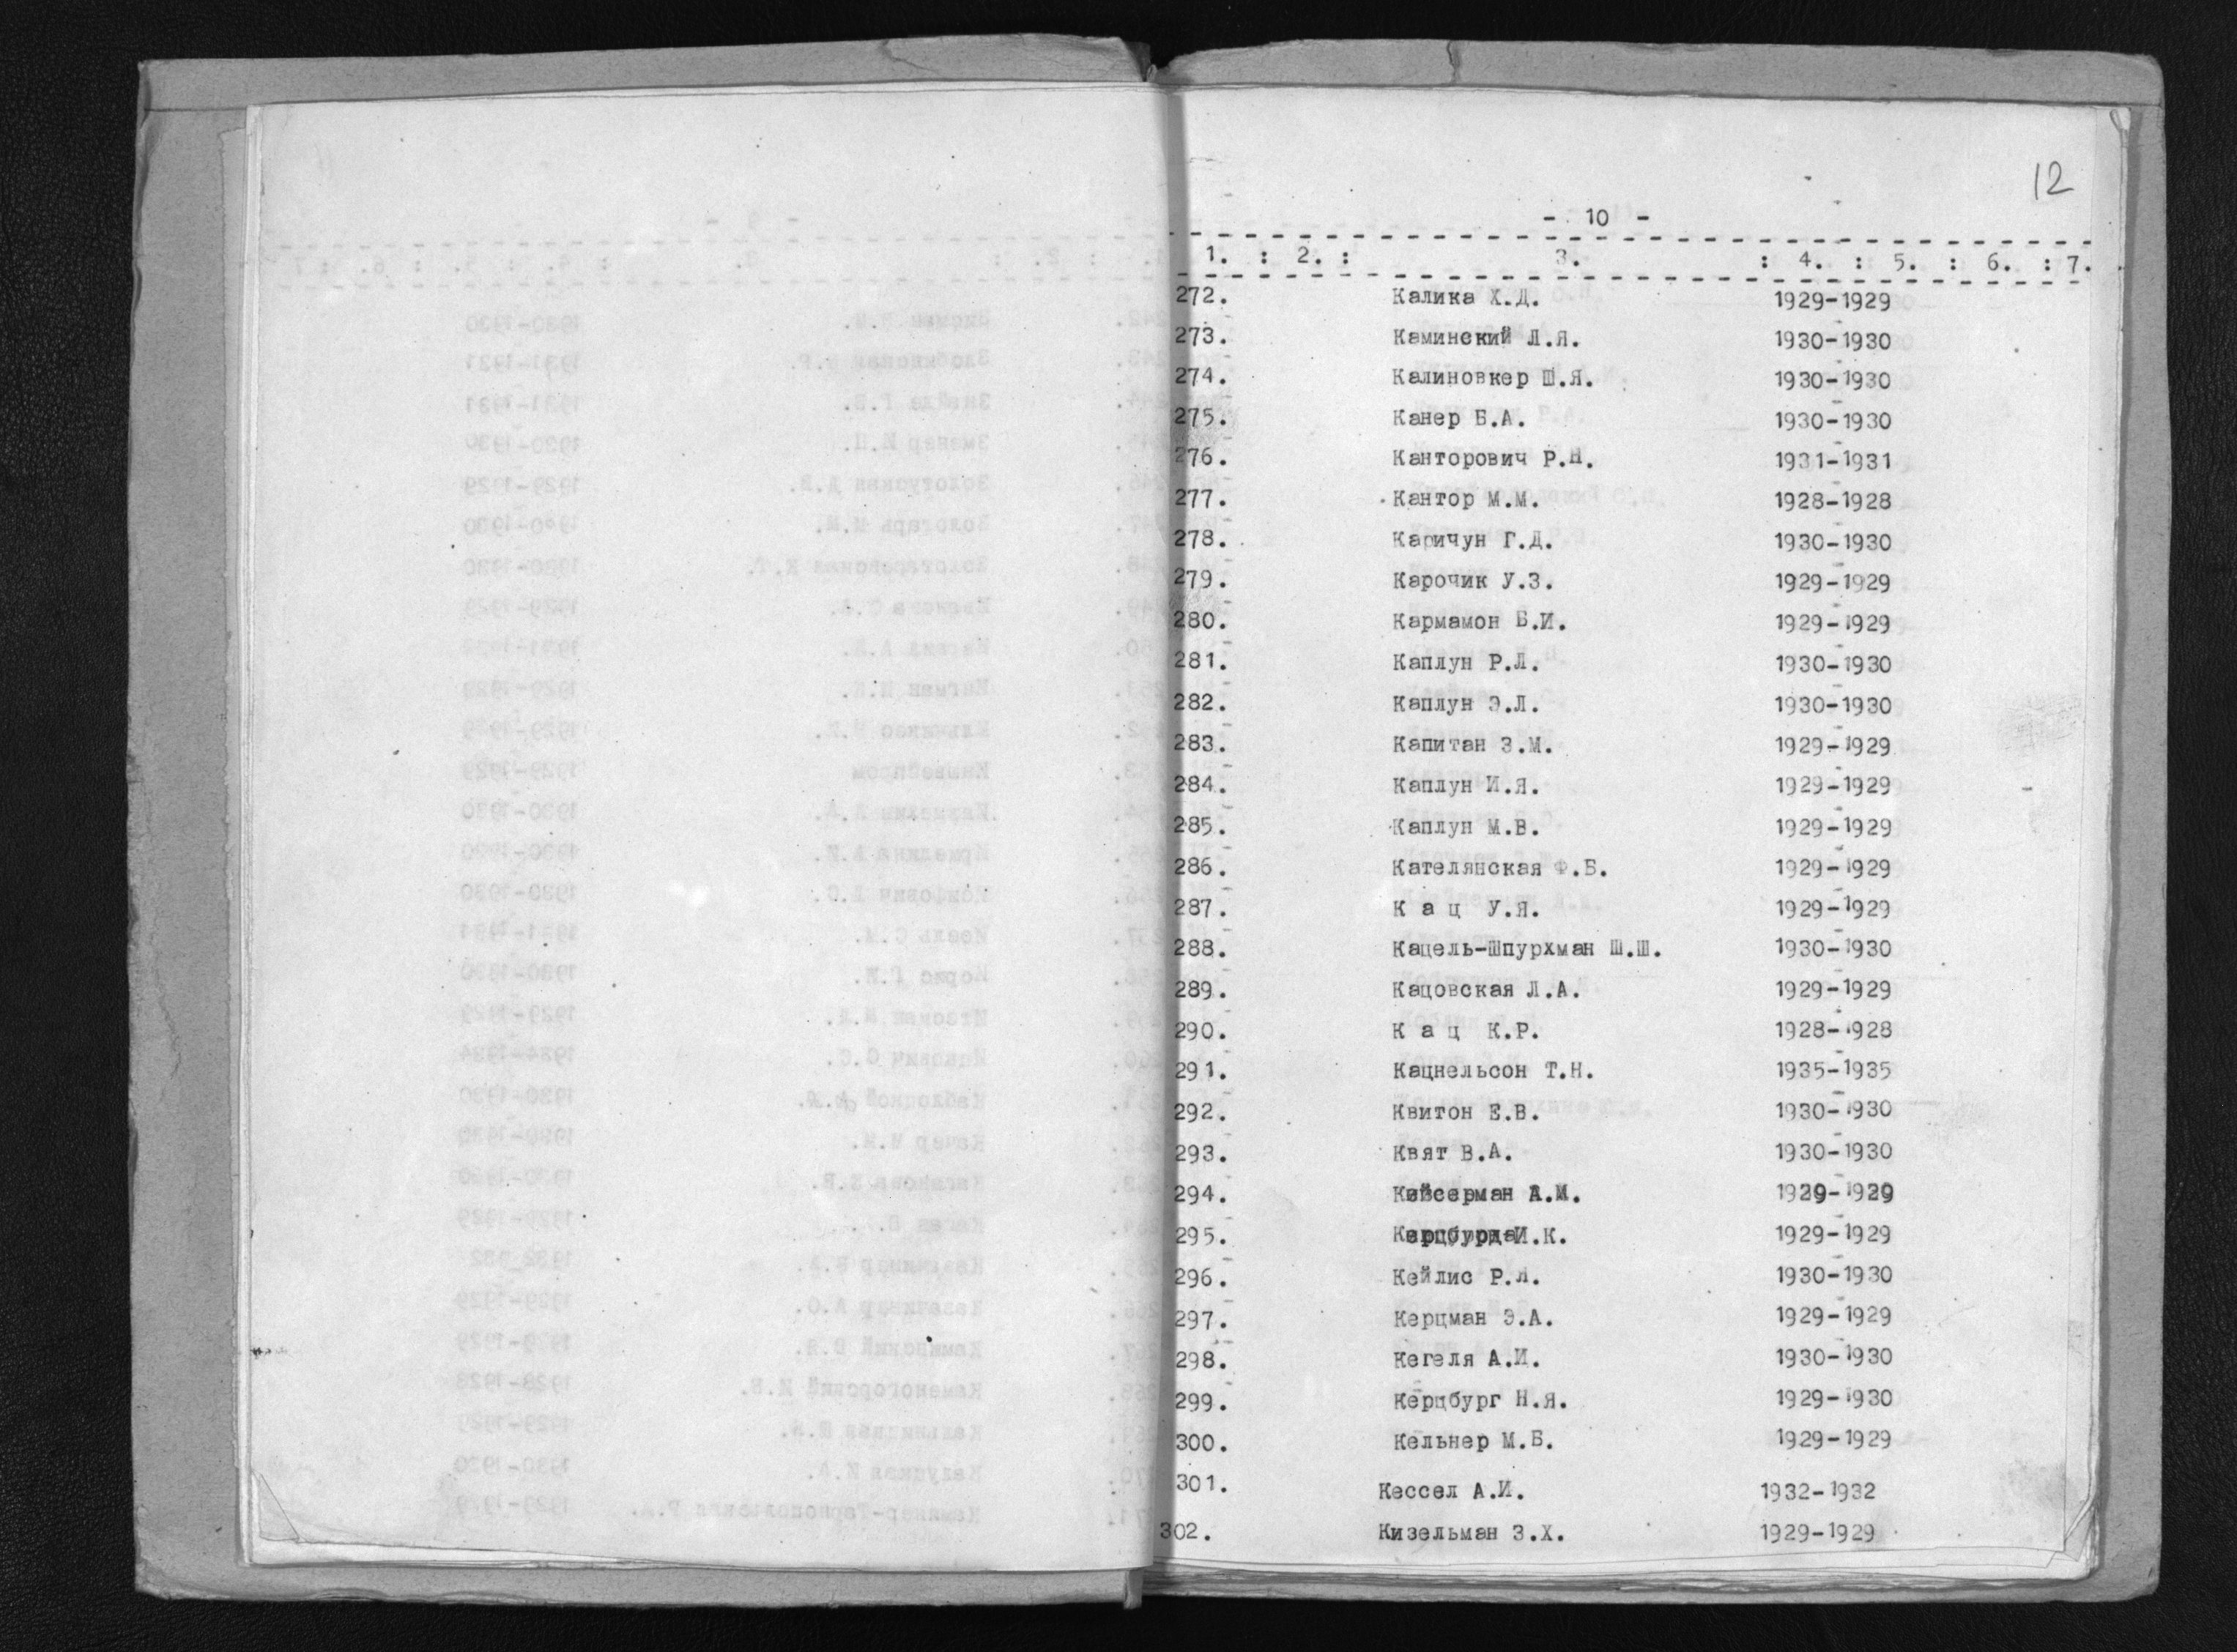 12
- 10 -
1. : 2. : 3. : 4. : 5. : 6. : 7.
272. Калика Х.Д. 1929-1929
273. Каминский Л.Я. 1930-1930
274. Калиновкер Ш.Я. 1930-1930
275. Канер Б.А. 1930-1930
276. Канторович Р.Н. 1931-1931
277. Кантор М.М. 1928-1928
278. Каричун Г.Д. 1930-1930
279. Карочик У.З. 1929-1929
280. Кармамон Б.И. 1929-1929
281. Каплун Р.Л. 1930-1930
282. Каплун Э.Л. 1930-1930
283. Капитан З.М. 1929-1929
284. Каплун И.Я. 1929-1929
285. Каплун М.В. 1929-1929
286. Кателянская Ф.Б. 1929-1929
287. К а ц У.Я. 1929-1929
288. Кацель-Шпурхман Ш.Ш. 1930-1930
289. Кацовская Л.А. 1929-1929
290. К а ц К.Р. 1928-1928
291. Кацнельсон Т.Н. 1935-1935
292. Квитон Е.В. 1930-1930
293. Квят В.А. 1930-1930
294. Кейсерман А.М. 1929-1929
295. И.К. 1929-1929
296. Кейлис Р.Л. 1930-1930
297. Керцман Э.А. 1929-1929
298. Кегеля А.И. 1930-1930
299. Керцбург Н.Я. 1929-1930
300. Кельнер М.Б. 1929-1929
301. Кессел А.И. 1932-1932
302. Кизельман З.Х. 1929-1929